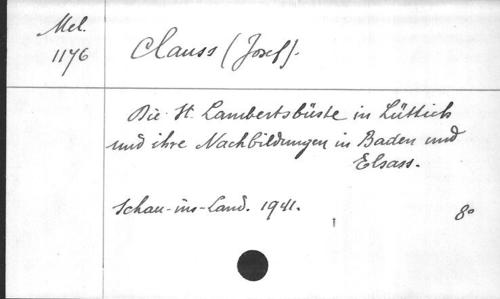 Mel.
1176
Clauss (Josef).
Die St. Lambertsbüste in Lüttich
und ihre Nachbildungen in Baden und
Elsass.
Schau-ins-Land. 1941.
8°